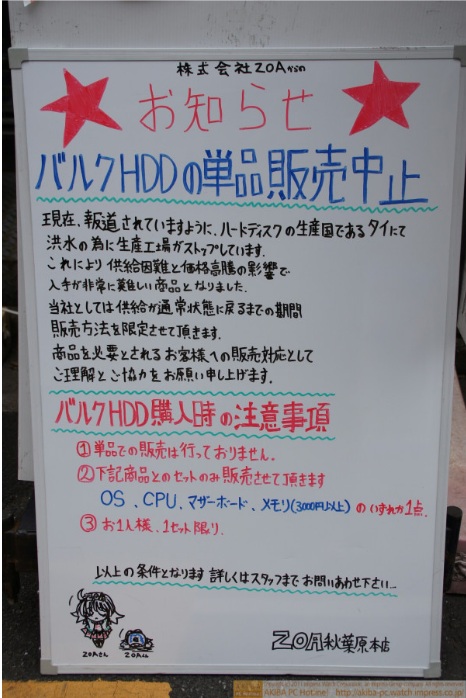 株式会社ZOAからの
お知らせ
バルクHDDの単品販売中止
現在、報道されていますように、ハードディスクの生産国であるタイにて
洪水の為に生産工場がストップしています.
これにより供給困難と価格高騰の影響で
入手が非常に難しい商品となりました.
当社としては供給が通常状態に戻るまでの期間
販売方法を限定させて頂きます.
商品を必要とされるお客様への販売対応として
ご理解とご協力をお願い申し上げます.
バルクHDD購入時の注意事項
①単品での販売は行っておりません.
②下記商品とのセットのみ販売させて頂きます
OS、CPU、マザーボード、メモリ(3000円以上)のいずれか1点.
③お1人様、1セット限り.
以上の条件となります 詳しくはスタッフまでお問いあわせ下さい...
ZOAさん
ZOAくん
ZOA秋葉原本店
AKIBA PC Hotline! http://akiba-pc.watch.impress.co.jp/